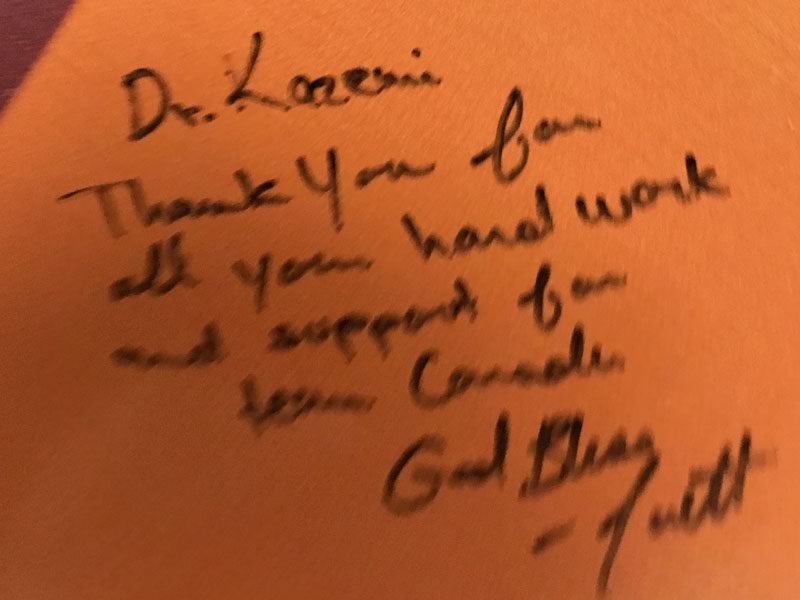 Dr. Kazemi
Thank You for
all your hard work
and support for
team Canada
God Bless